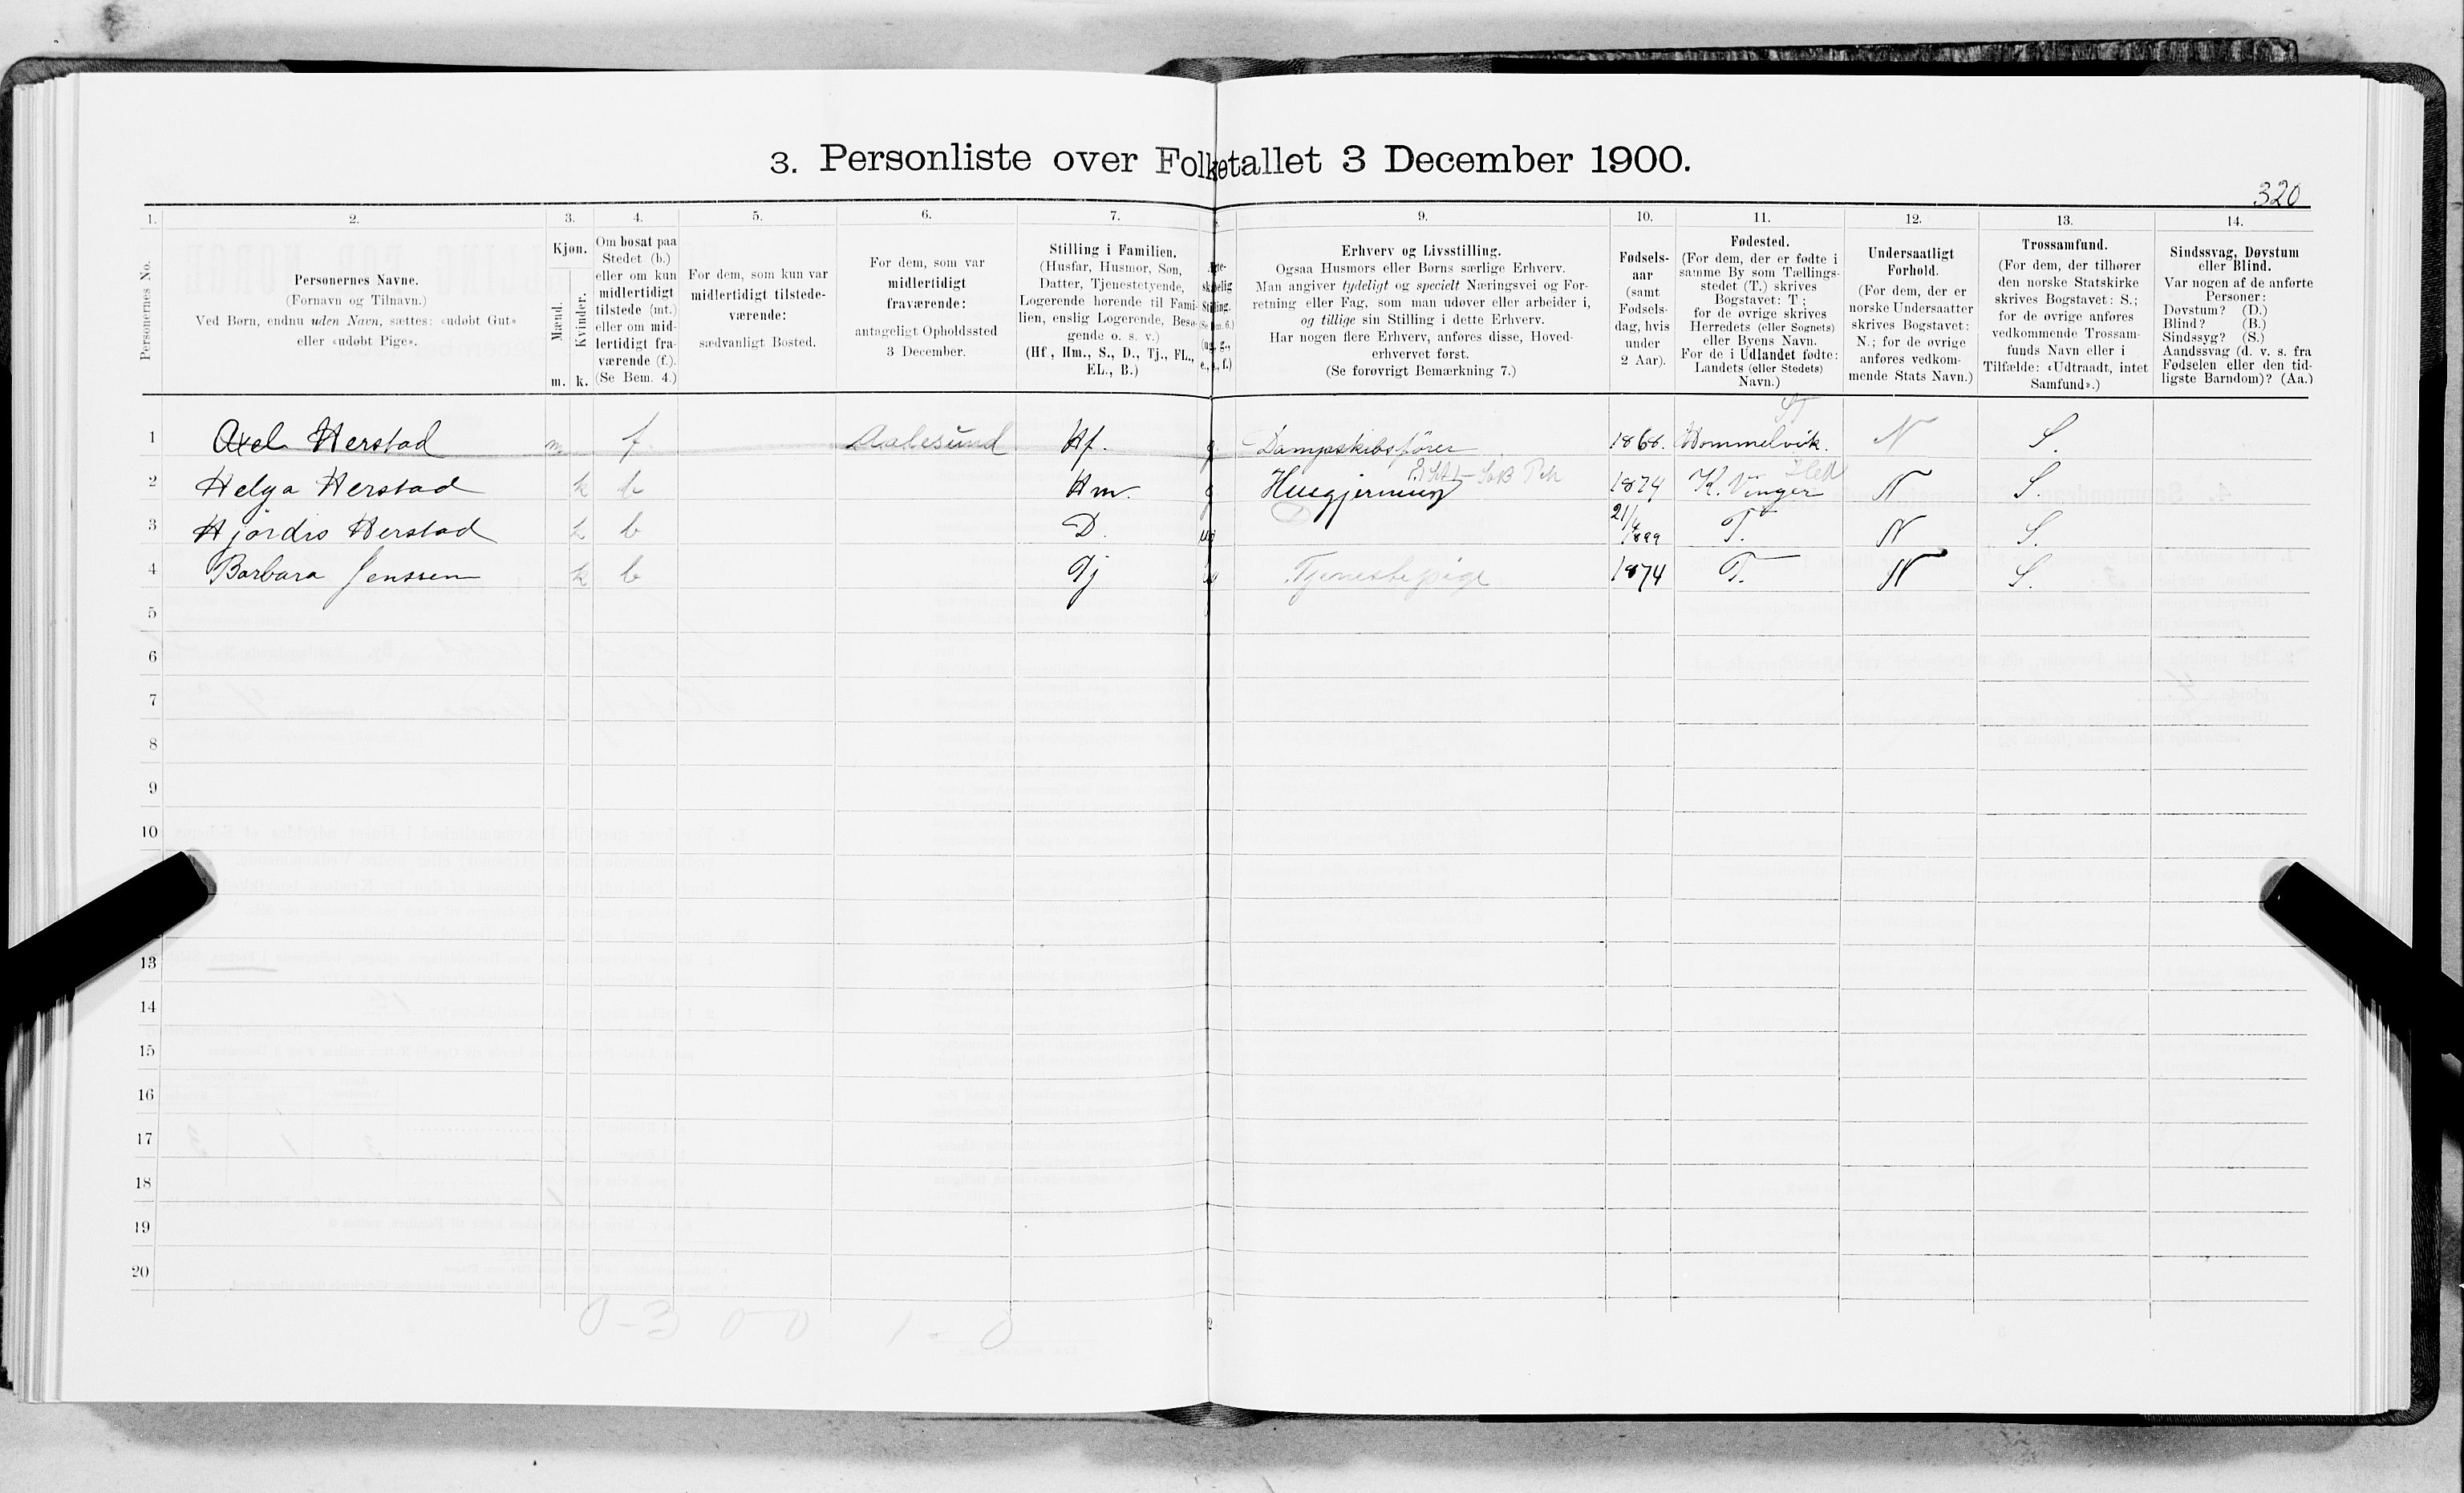 3. Personliste over Folketallet 3 December 1900.
320
1. 2. 3. 4. 5. 6. 7. 9. 10. 11. 12. 13. 14.
Personernes No.
Personernes Navne.
(Fornavn og Tilnavn.)
Ved Børn, endnu uden Navn, sættes: «udøbt Gut»
eller «udøbt Pige».
Kjøn.
Mænd.
Kvinder.
m. k.
Om bosat paa
Stedet (b.)
eller om kun
midlertidigt
tilstede (mt.)
eller om mid-
lertidigt fra-
værende (f.).
(Se Bem. 4.)
For dem, som kun var
midlertidigt tilstede-
værende:
sædvanligt Bosted.
For dem, som var
midlertidigt
fraværende:
antageligt Opholdssted
3 December.
Stilling i Familien.
(Husfar, Husmor, Søn,
Datter, Tjenestetyende,
Logerende hørende til Fami-
lien, enslig Logerende, Besø-
gende o. s. v.)
(Hf., Hm., S., D., Tj., FL.,
EL., B.)
Erhverv og Livsstilling.
Ogsaa Husmors eller Børns særlige Erhverv.
Man angiver tydeligt og specielt Næringsvei og For-
retning eller Fag, som man udøver eller arbeider i,
og tillige sin Stilling i dette Erhverv.
Har nogen flere Erhverv, anføres disse, Hoved-
erhvervet først.
(Se forøvrigt Bemærkning 7.)
Fødsels-
aar
(samt
Fødsels-
dag, hvis
under
2 Aar).
Fødested.
(For dem, der er fødte i
samme By som Tællings-
stedet (T.) skrives
Bogstavet: T;
for de øvrige skrives
Herredets (eller Sognets)
eller Byens Navn.
For de i Udlandet fødte:
Landets (eller Stedets)
Navn.)
Undersaatligt
Forhold.
(For dem, der er
norske Undersaatter
skrives Bogstavet:
N.; for de øvrige
anføres vedkom-
mende Stats Navn.)
Trossamfund.
(For dem, der tilhører
den norske Statskirke
skrives Bogstavet: S.;
for de øvrige anføres
vedkommende Trossam-
funds Navn eller i
Tilfælde: «Udtraadt, intet
Samfund».)
Sindssvag, Døvstum
eller Blind.
Var nogen af de anførte
Personer:
Døvstum? (D.)
Blind? (B.)
Sindssyg? (S.)
Aandssvag (d. v. s. fra
Fødselen eller den tid-
ligste Barndom)? (Aa.)
1 Axel Herstad m f Aalesund Hf. g Dampskibsfører 1866. Hommelvik. N S.
2 Helga Herstad k b Hm. g Husgjerning 1874 K. Vinger N S.
3 Hjördis Herstad k b D. ug 21/4 1899 T. N S.
4 Barbara Jenssen k b Tj Tjenestepige 1874 T. N S.
5
6
7
8
9
10
13
14
15
16
17
18
19
20
0-3 0-0 1-0